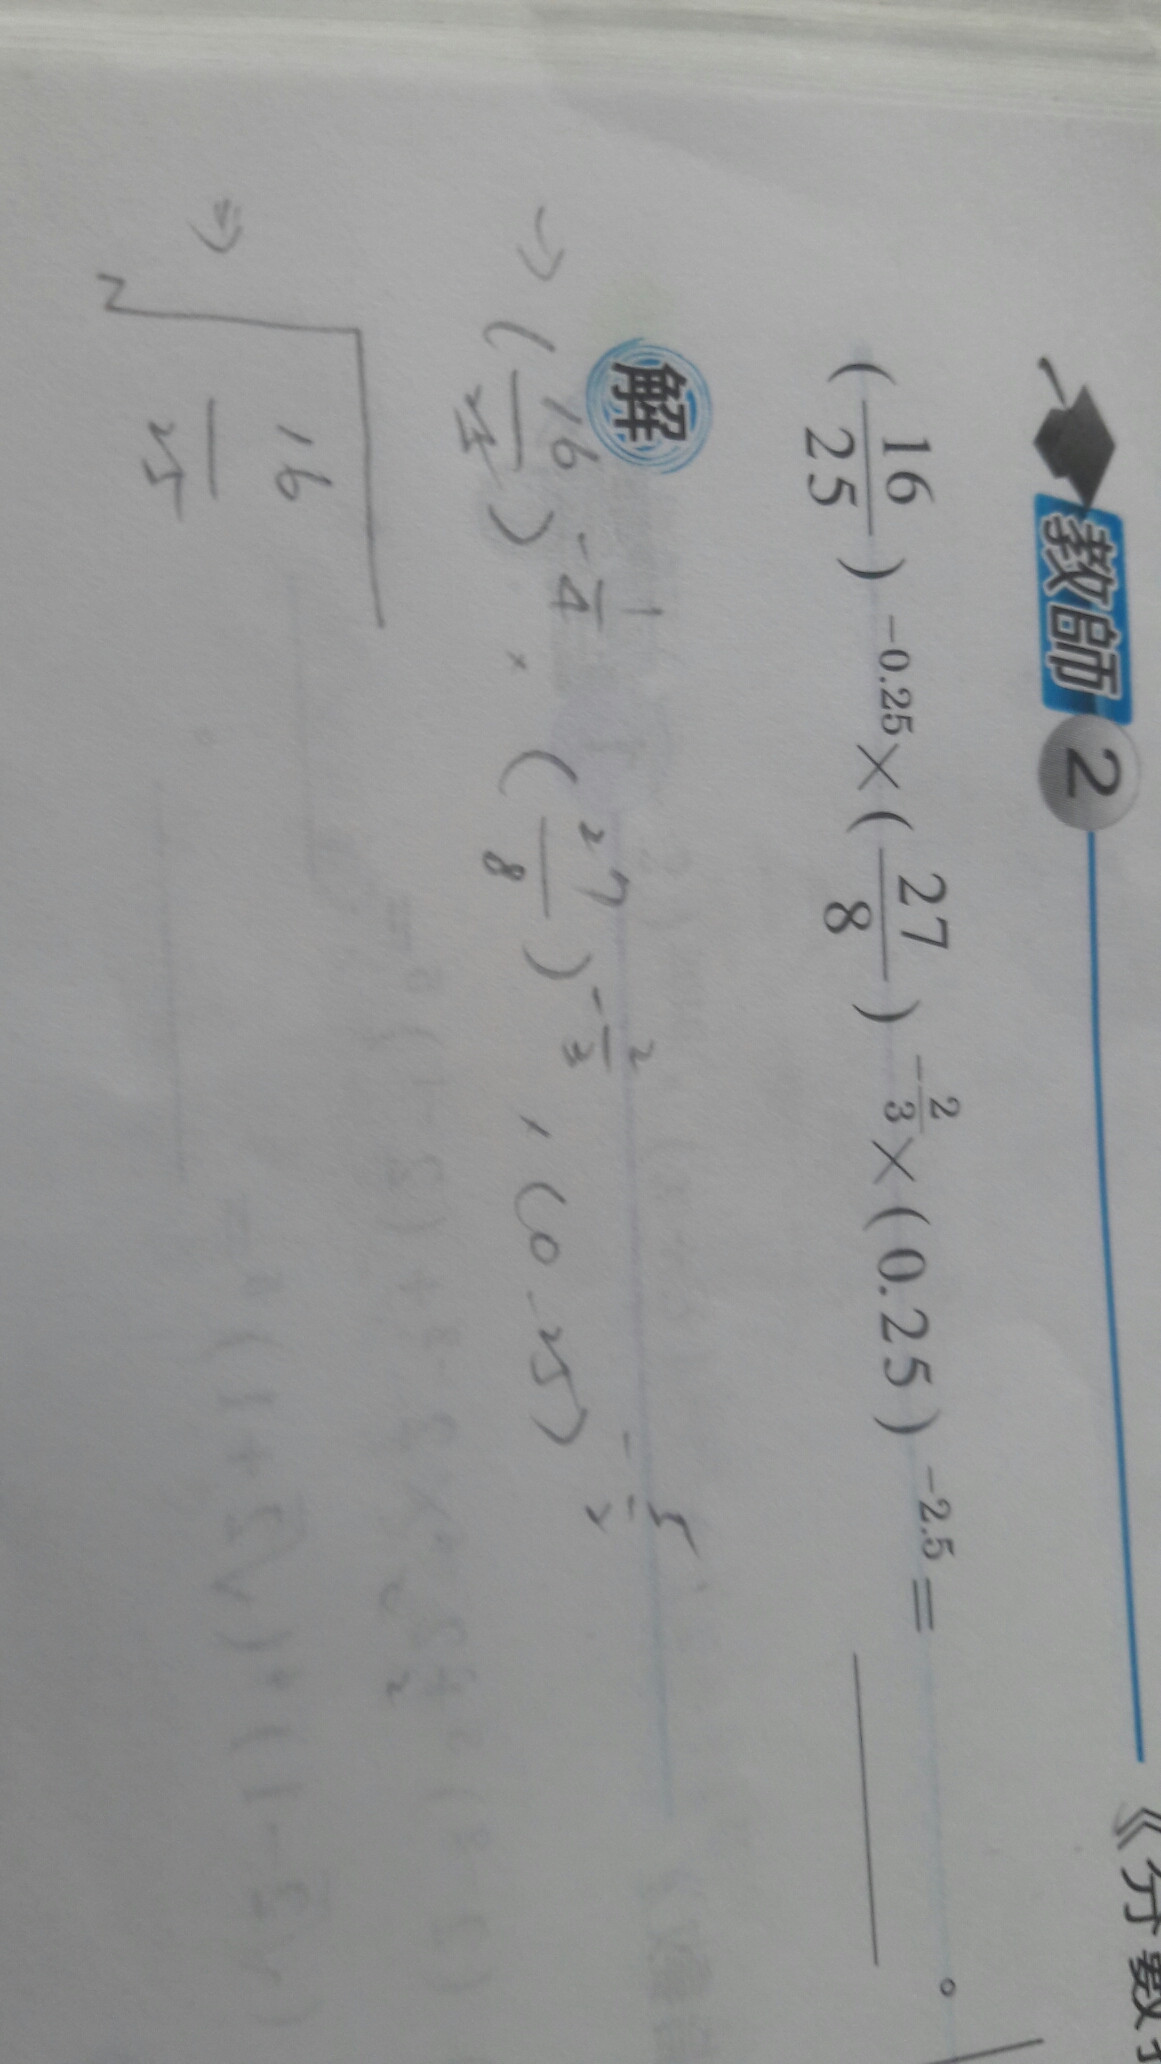 教師 2
《分數
(16/25)^-0.25 × (27/8)^-2/3 × (0.25)^-2.5 = ______。
解
→ (16/25)^-1/4 × (27/8)^-2/3 × (0.25)^-5/2
⇒ √16/25